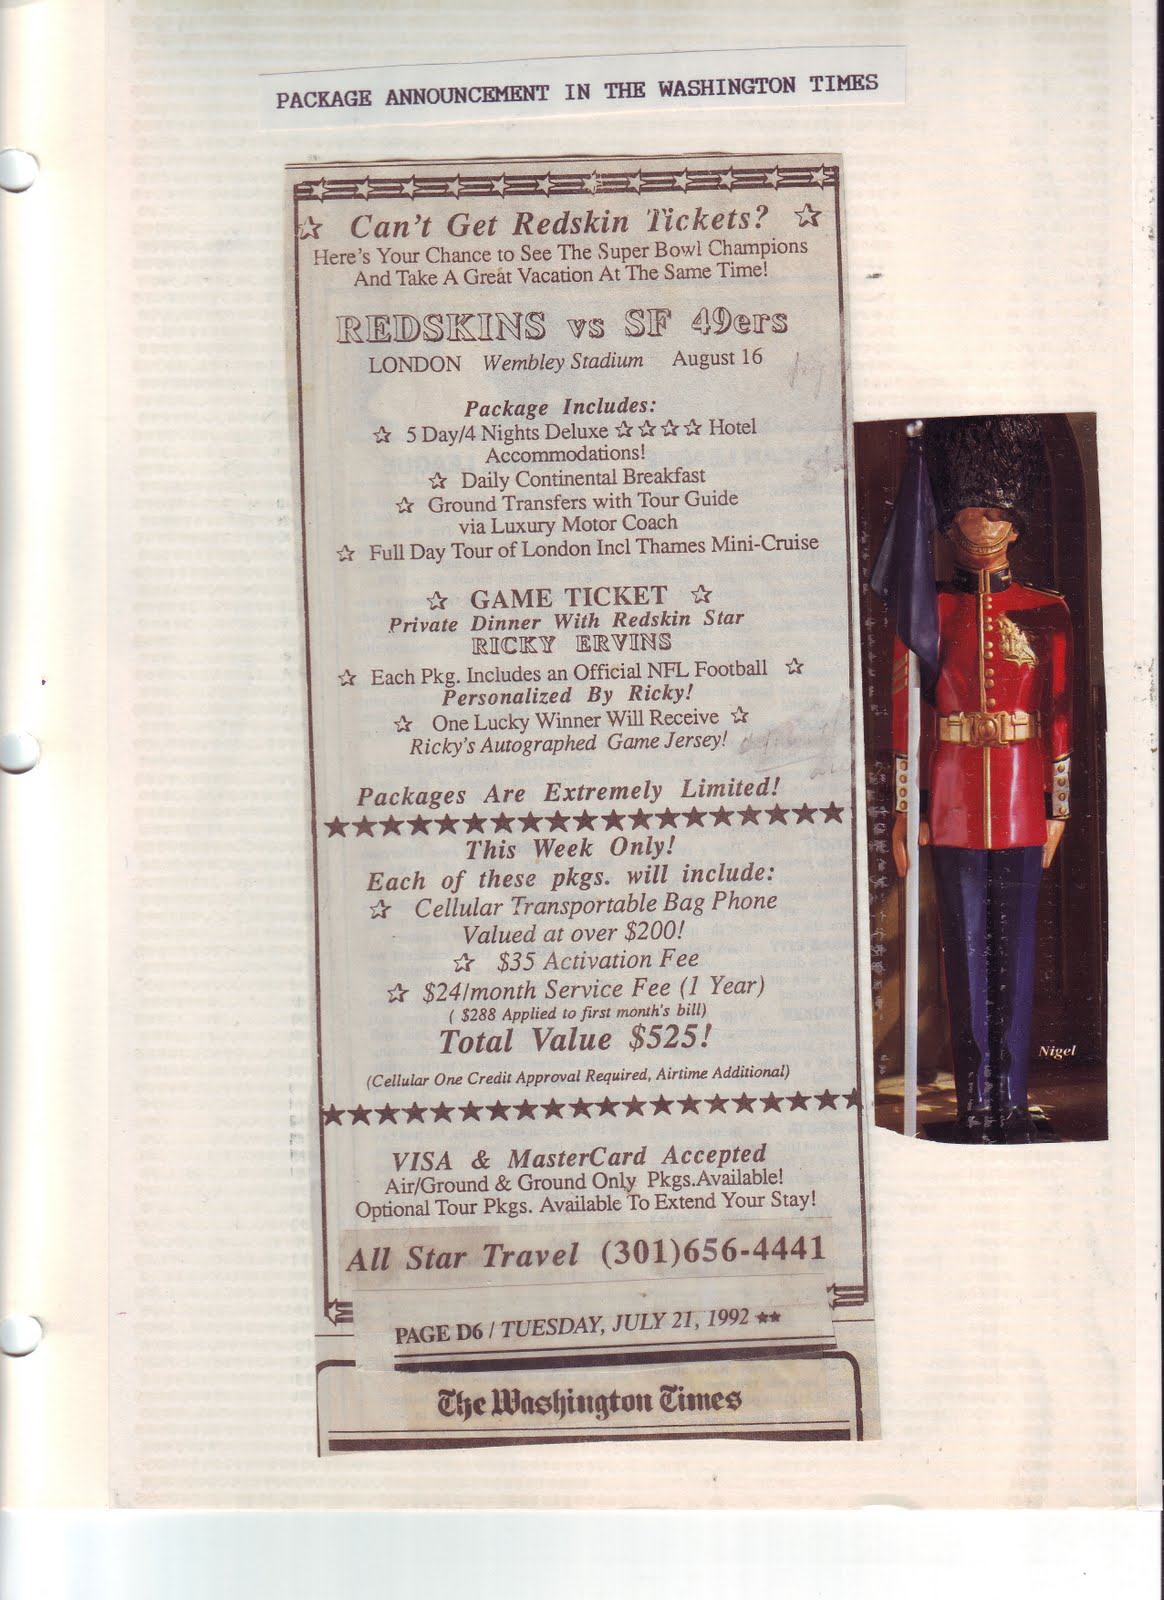 PACKAGE ANNOUNCEMENT IN THE WASHINGTON TIMES
☆ Can't Get Redskin Tickets? ☆
Here's Your Chance to See The Super Bowl Champions
And Take A Great Vacation At The Same Time!
REDSKINS vs SF 49ers
LONDON Wembley Stadium August 16
Package Includes:
☆ 5 Day/4 Nights Deluxe ☆☆☆☆ Hotel
Accommodations!
☆ Daily Continental Breakfast
☆ Ground Transfers with Tour Guide
via Luxury Motor Coach
☆ Full Day Tour of London Incl Thames Mini-Cruise
☆ GAME TICKET ☆
Private Dinner With Redskin Star
RICKY ERVINS
☆ Each Pkg. Includes an Official NFL Football ☆
Personalized By Ricky!
☆ One Lucky Winner Will Receive ☆
Ricky's Autographed Game Jersey!
Packages Are Extremely Limited!
This Week Only!
Each of these pkgs. will include:
☆ Cellular Transportable Bag Phone
Valued at over $200!
☆ $35 Activation Fee
☆ $24/month Service Fee (1 Year)
( $288 Applied to first month's bill)
Total Value $525!
(Cellular One Credit Approval Required, Airtime Additional)
VISA & MasterCard Accepted
Air/Ground & Ground Only Pkgs.Available!
Optional Tour Pkgs. Available To Extend Your Stay!
All Star Travel (301)656-4441
PAGE D6 / TUESDAY, JULY 21, 1992 ★★
The Washington Times
Nigel